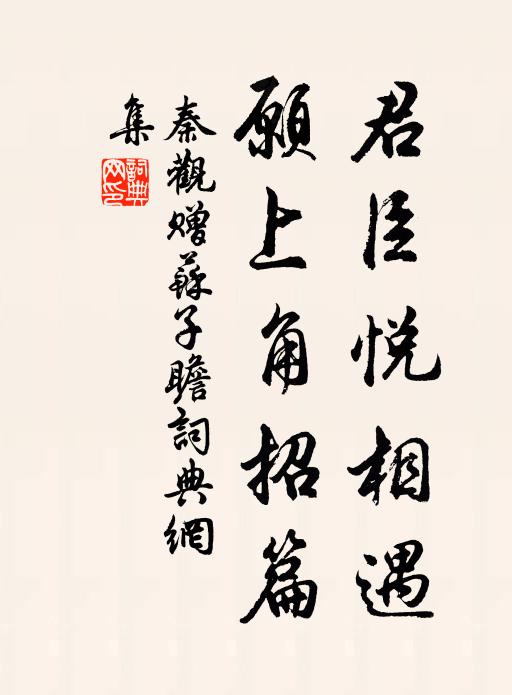 君臣悦相遇
願上角招篇
秦觀赠蘇子瞻詞典網
集
詞典
网印